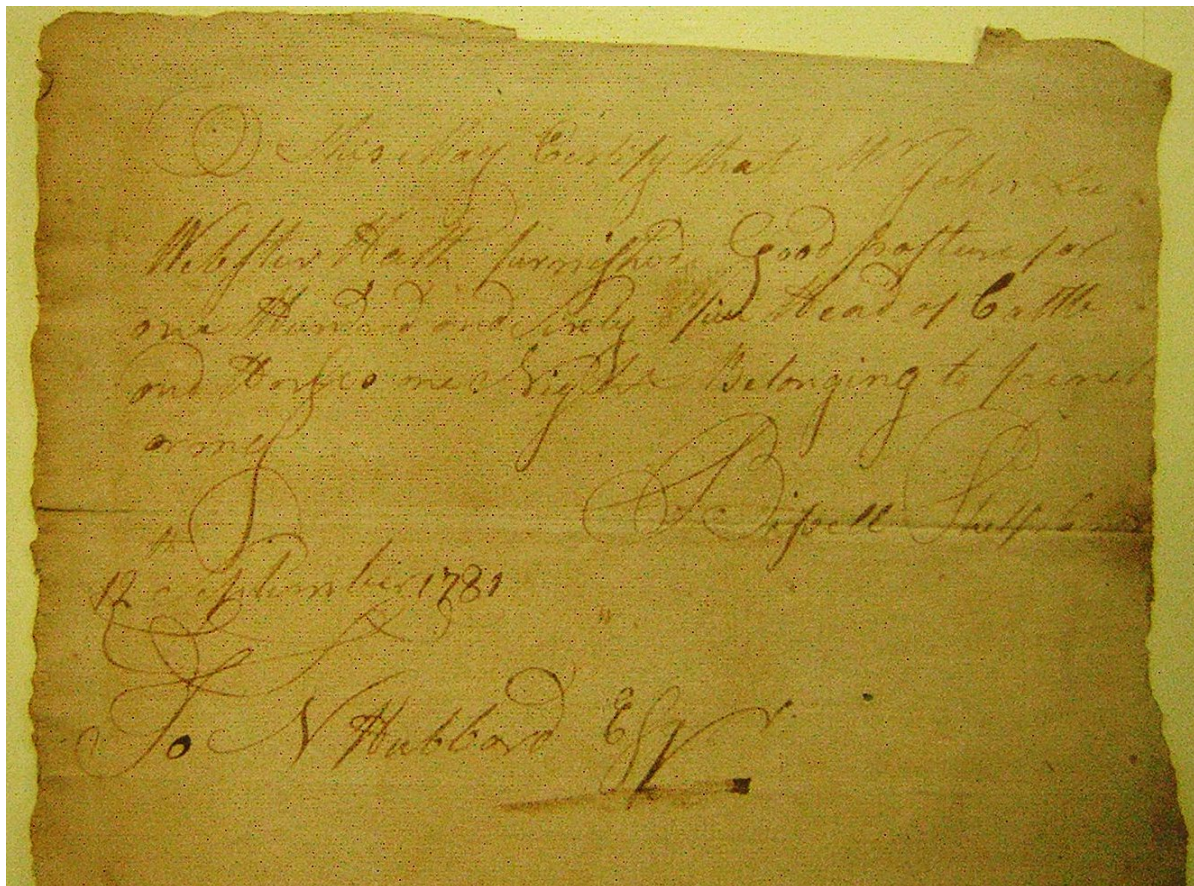 This May Certify that Mr John Lee
Webster Hath furnished Good pasture for
one Hundred and Sixty five Head of Cattle
and Horses one Night Belonging to french
armey
Bissell Phelps
12th September 1781
To N Hubbard Esqr